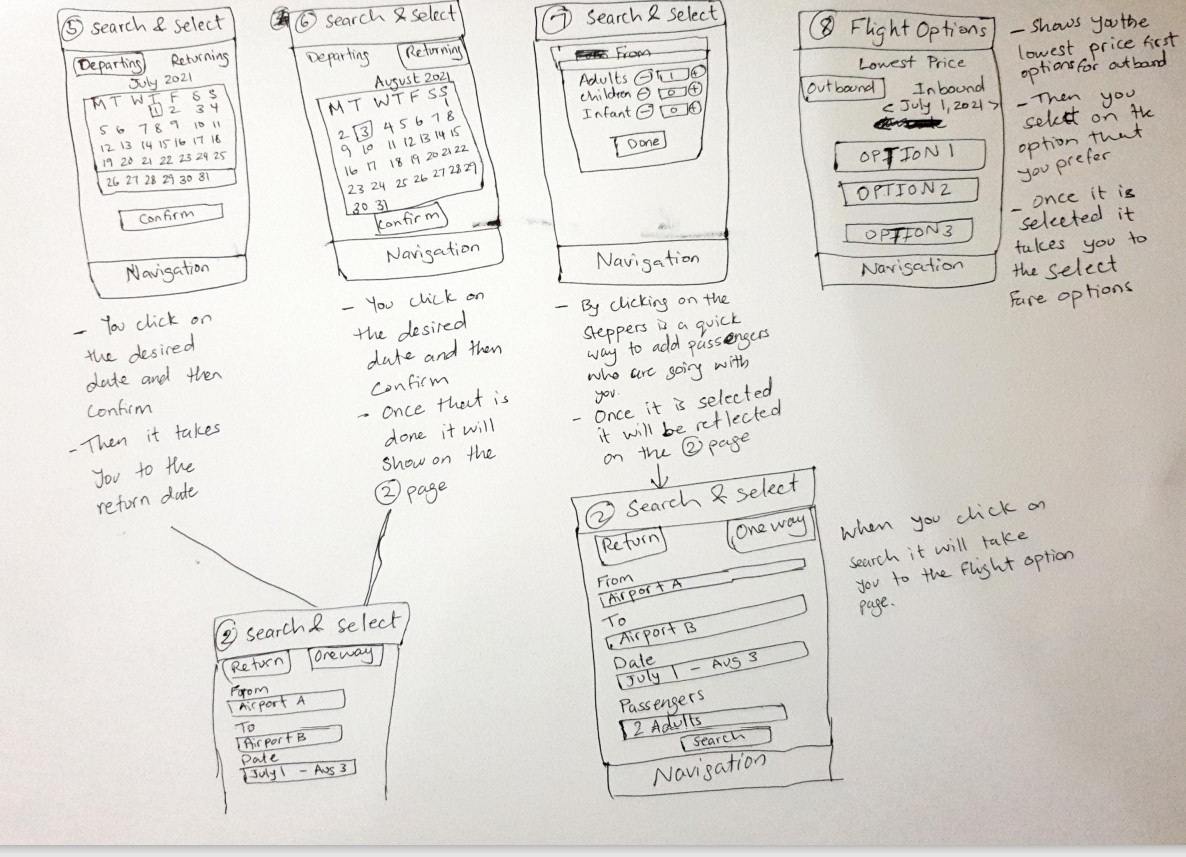 5 Search & Select
Departing Returning
July 2021
M T W T F S S
1 2 3 4
5 6 7 8 9 10 11
12 13 14 15 16 17 18
19 20 21 22 23 24 25
26 27 28 29 30 31
Confirm
Navigation
- You click on
the desired
date and then
Confirm
- Then it takes
you to the
return date
6 Search & Select
Departing Returning
August 2021
M T W T F S S
1
2 3 4 5 6 7 8
9 10 11 12 13 14 15
16 17 18 19 20 21 22
23 24 25 26 27 28 29
30 31
Confirm
Navigation
- You click on
the desired
date and then
Confirm
- Once that is
done it will
show on the
2 page
7 Search & Select
From
Adults - 1 +
Children - 0 +
Infant - 0 +
Done
Navigation
- By clicking on the
steppers is a quick
way to add passengers
who are going with
you.
- Once it is selected
it will be reflected
on the 2 page
8 Flight Options
Lowest Price
Outbound Inbound
< July 1, 2021 >
OPTION 1
OPTION 2
OPTION 3
Navigation
- Shows you the
lowest price first
options for outband
- Then you
select on the
option that
you prefer
- once it is
selected it
takes you to
the select
Fare options
2 Search & Select
Return One way
From
Airport A
To
Airport B
Date
July 1 - Aug 3
2 Search & Select
Return One way
From
Airport A
To
Airport B
Date
July 1 - Aug 3
Passengers
2 Adults
Search
Navigation
When you click on
search it will take
you to the flight option
page.